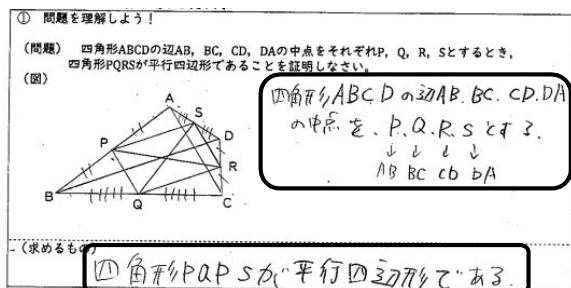 ① 問題を理解しよう！
(問題) 四角形ABCDの辺AB, BC, CD, DAの中点をそれぞれP, Q, R, Sとするとき,
四角形PQRSが平行四辺形であることを証明しなさい。
(図)
A
S
D
P
R
B
Q
C
四角形ABCDの辺AB.BC.CD.DA
の中点を、P.Q.R.Sとする.
↓ ↓ ↓ ↓
AB BC cb bA
(求めるもの)
四角形PQPSが平行四辺形である.